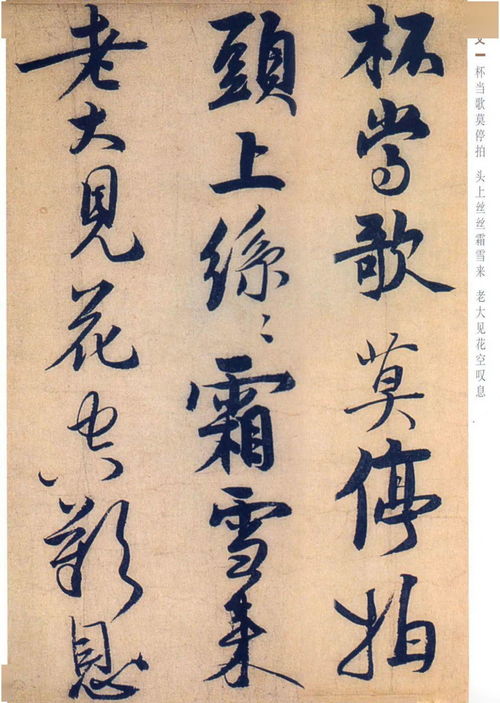 杯當歌莫停拍
頭上絲〻霜雪来
老大見花空歎息
文
杯当歌莫停拍 头上丝丝霜雪来 老大见花空叹息